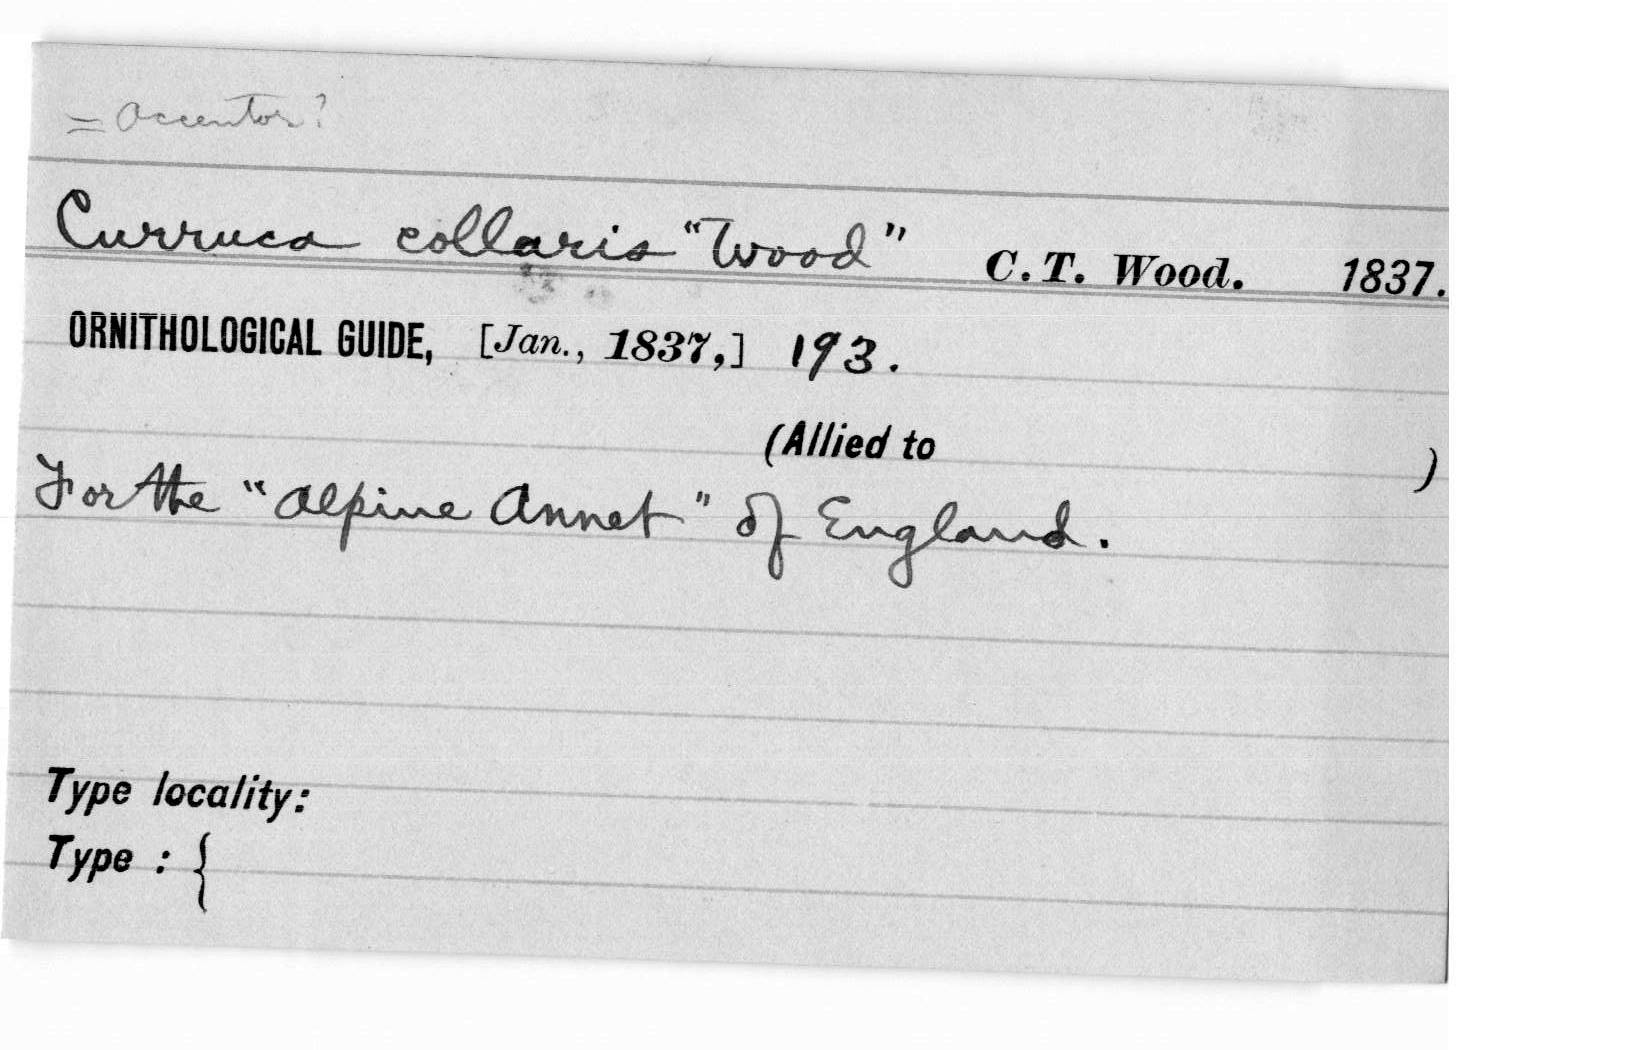 = Accentor?
Curruca collaris "Wood" C. T. Wood. 1837.
ORNITHOLOGICAL GUIDE, [Jan., 1837,] 193.
(Allied to )
For the "Alpine Annet" of England.
Type locality:
Type : {